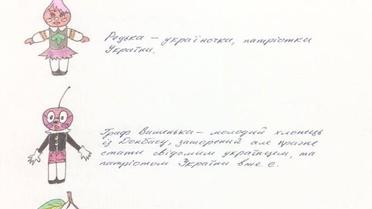 Редька — україночка, патріотка
України.
Граф Вишенька — молодий хлопець
із Донбасу, зашорений але прагне
стати свідомим українцем, та
патріотом України вже є.